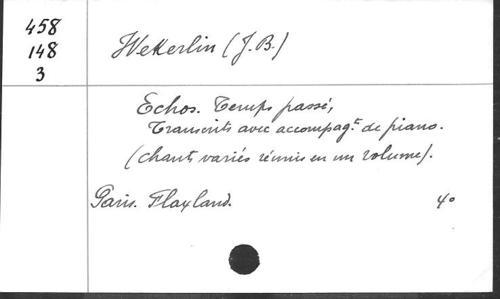 458
148
3
Wekerlin (J.B.)
Echos. Temps passé,
Transcrits avec accompagt. de piano.
(chants variés réunis en un volume).
Paris. Flaxland. 4°